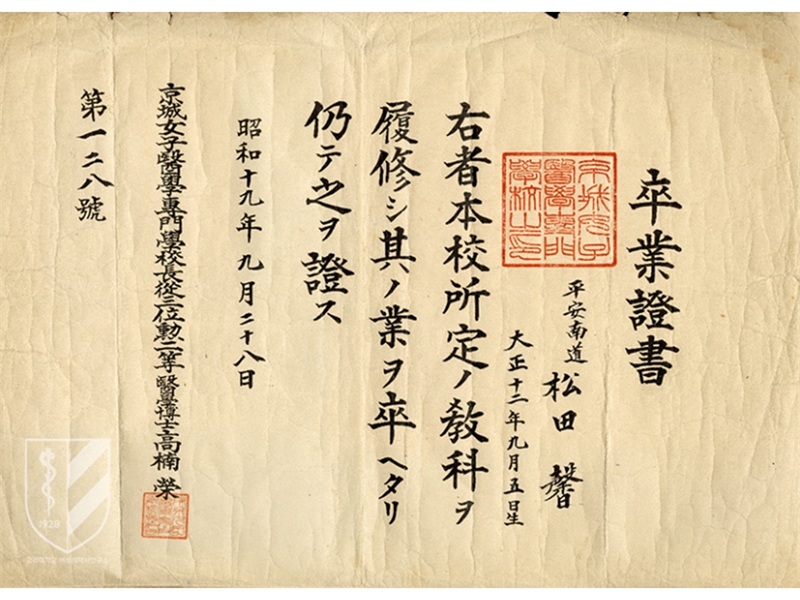 卒業證書
平安南道
松田 馨
大正十二年九月五日生
右者本校所定ノ敎科ヲ
履修シ其ノ業ヲ卒ヘタリ
仍テ之ヲ證ス
昭和十九年九月二十八日
京城女子醫學專門學校長從三位勳二等醫學博士高楠 榮
第一二八號
京城女子
醫學專門
學校之印
1928